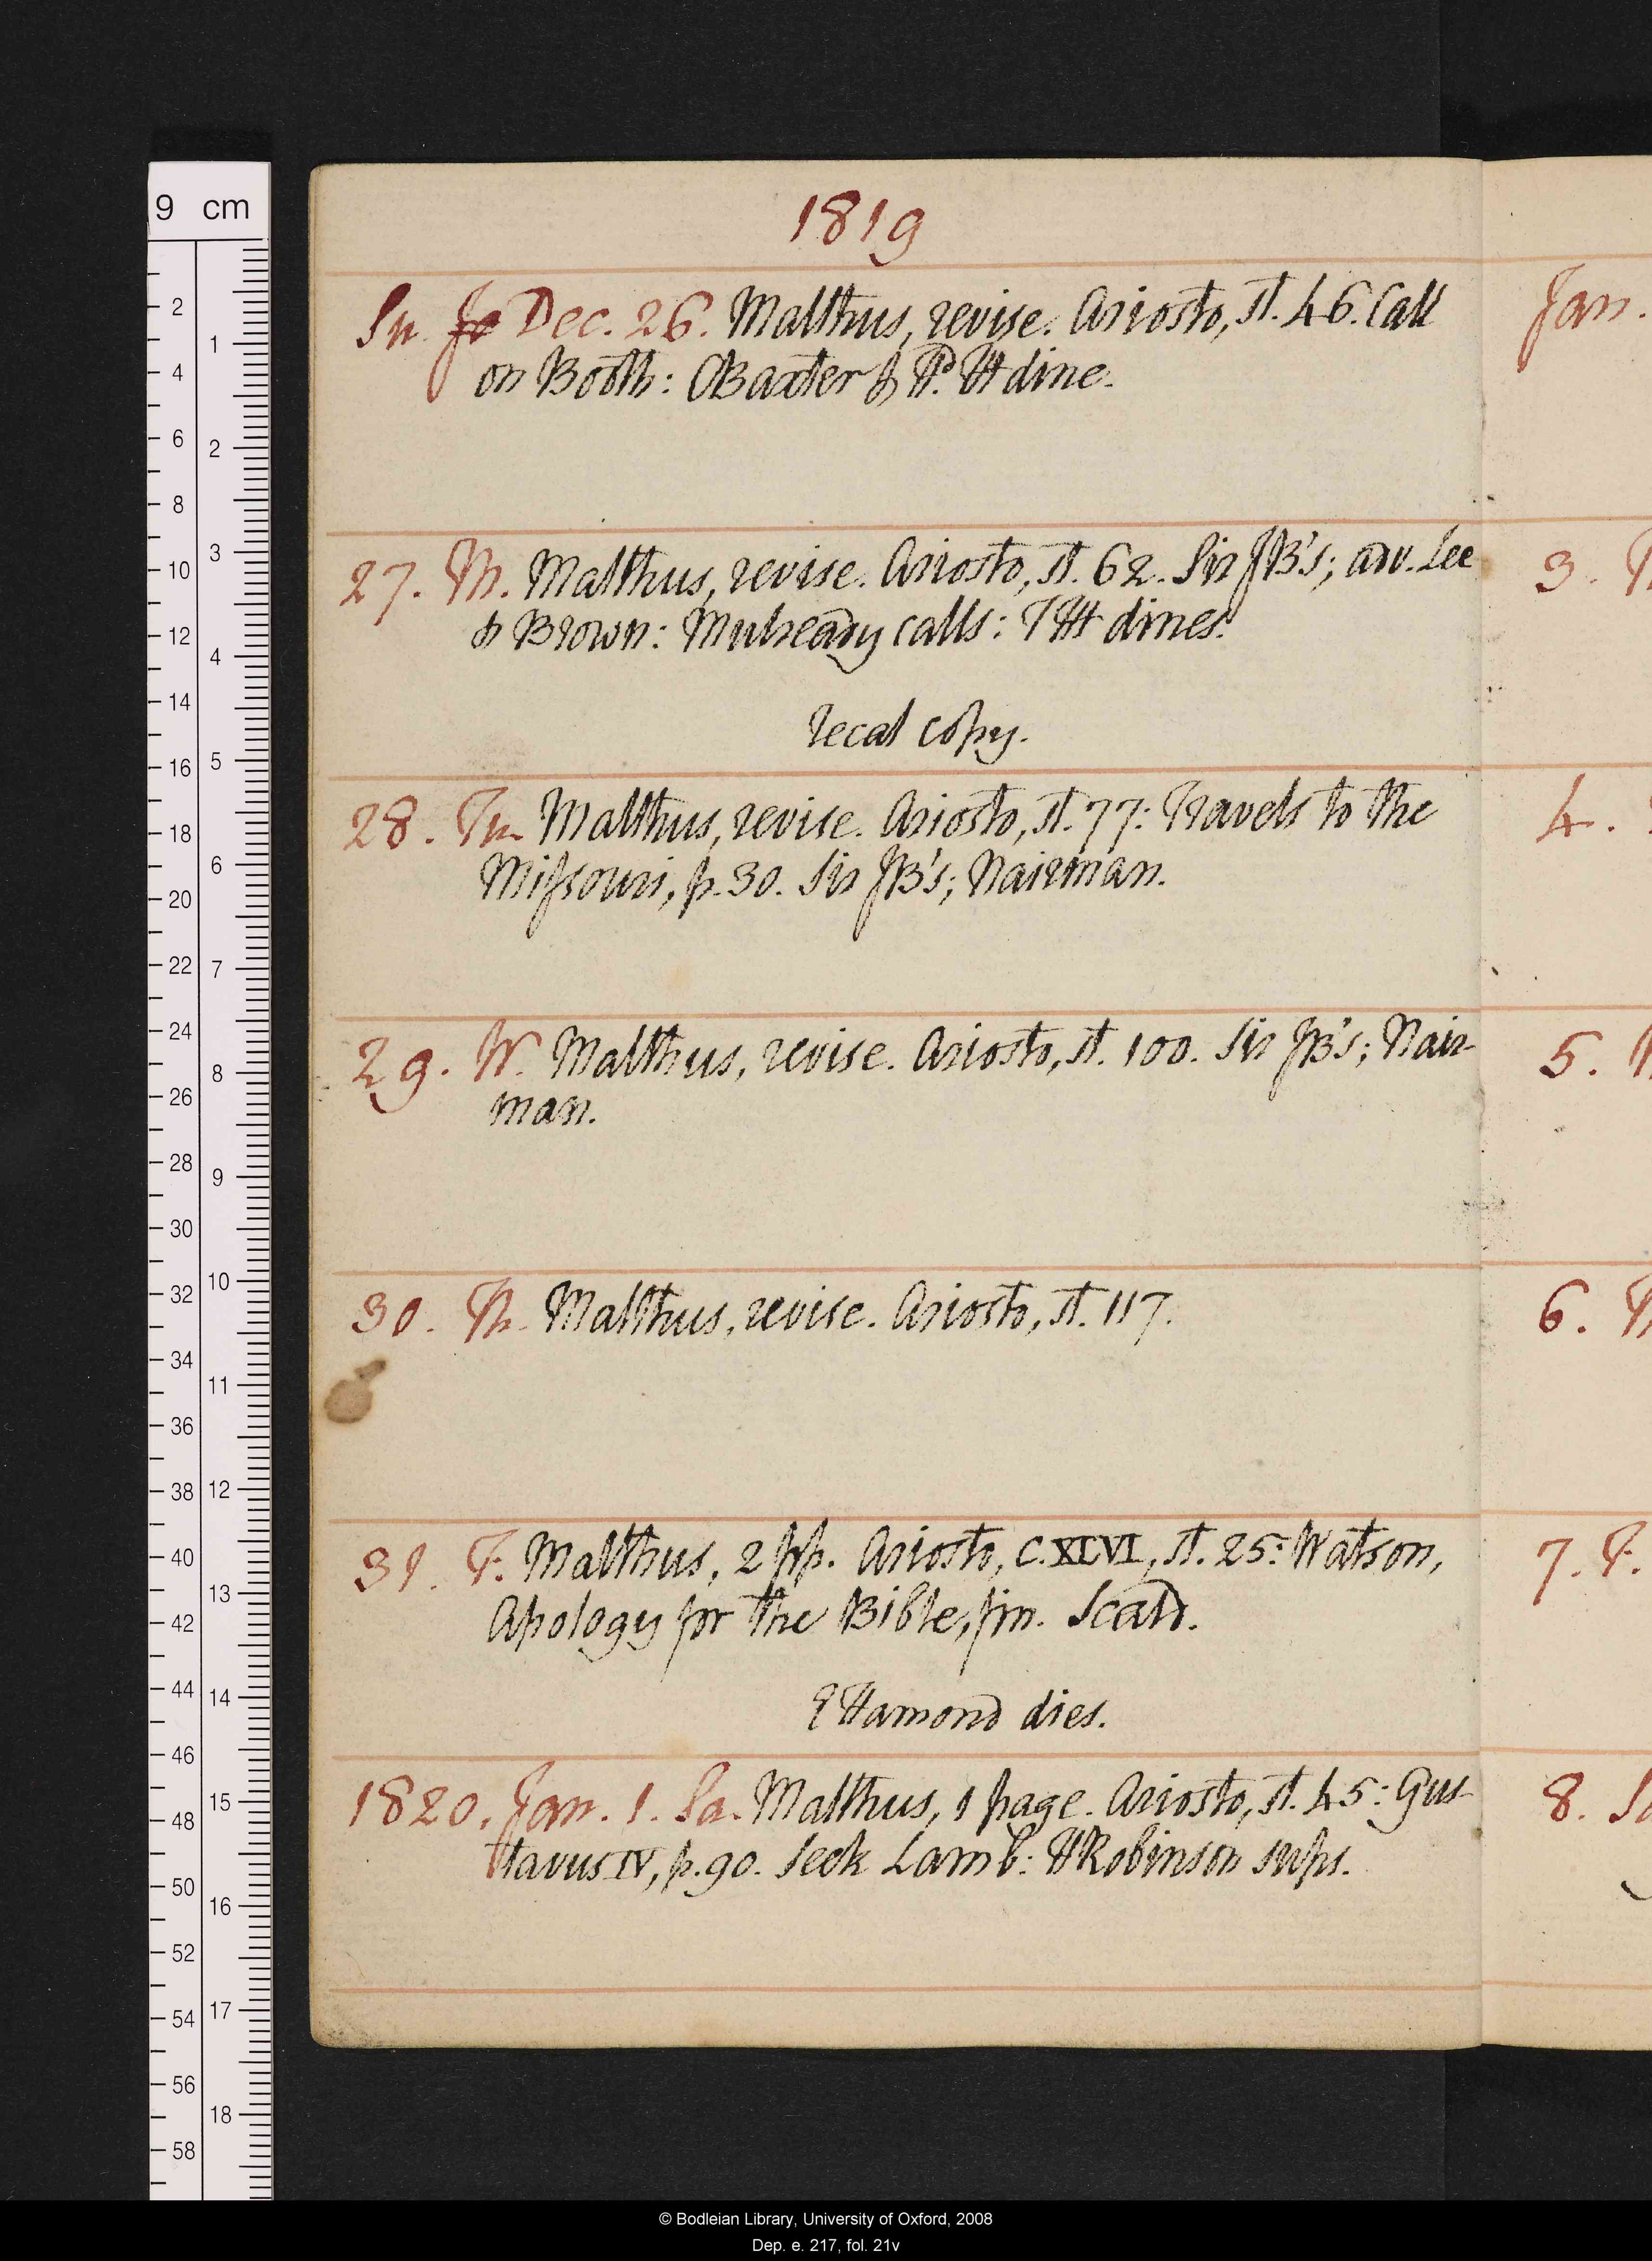 1819
Su. Dec. 26. Malthus, revise. Ariosto, st. 46. Call
on Booth: Baxter & P. H dine.
27. M. Malthus, revise. Ariosto, st. 62. Sir JB's; adv. Lee
& Brown: Mulready calls: TH dines.
recal copy.
28. Tu. Malthus, revise. Ariosto, st. 77: Travels to the
Missouri, p. 30. Sir JB's; Nairman.
29. W. Malthus, revise. Ariosto, st. 100. Sir JB's; Nair-
man.
30. Th. Malthus, revise. Ariosto, st. 117.
31. F. Malthus, 2 pp. Ariosto, C. XLVI, st. 25: Watson,
Apology for the Bible, fin. Scald.
E Hamond dies.
1820. Jan. 1. Sa. Malthus, 1 page. Ariosto, st. 45: Gus-
tavus IV, p. 90. Seek Lamb: H Robinson sups.
Jan.
3.
4.
5.
6.
7. F.
8. Sa
9 cm
2
4
6
8
10
12
14
16
18
20
22
24
26
28
30
32
34
36
38
40
42
44
46
48
50
52
54
56
58
1
2
3
4
5
6
7
8
9
10
11
12
13
14
15
16
17
18
© Bodleian Library, University of Oxford, 2008
Dep. e. 217, fol. 21v